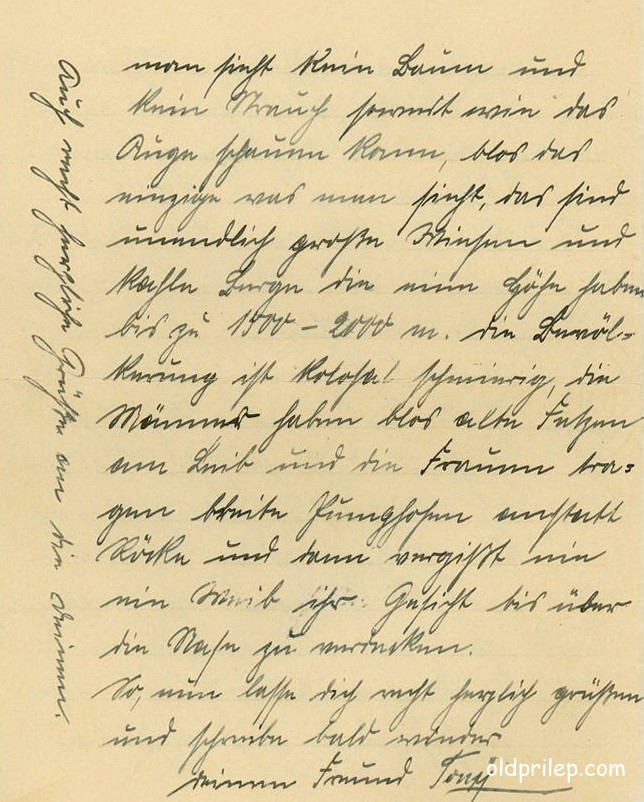 man sieht kein Baum und
kein Strauch soweit wie das
Auge schauen kann, blos das
einzige was man sieht, das sind
unendlich große Wiesen und
kahle Berge die eine Höhe haben
bis zu 1500 – 2000 m. die Bevöl=
kerung ist kolosal schmierig, die
Männer haben blos alte Fetzen
am Leib und die Frauen tra=
gen breite Pumphosen anstatt
Röcke und dann vergißt nie
ein Weib ihr Gesicht bis über
die Nase zu verdecken.
So, nun lasse dich recht herzlich grüßen
und schreibe bald wieder
deinem Freund
Auch recht herzliche Grüße an die deinen.
oldprilep.com